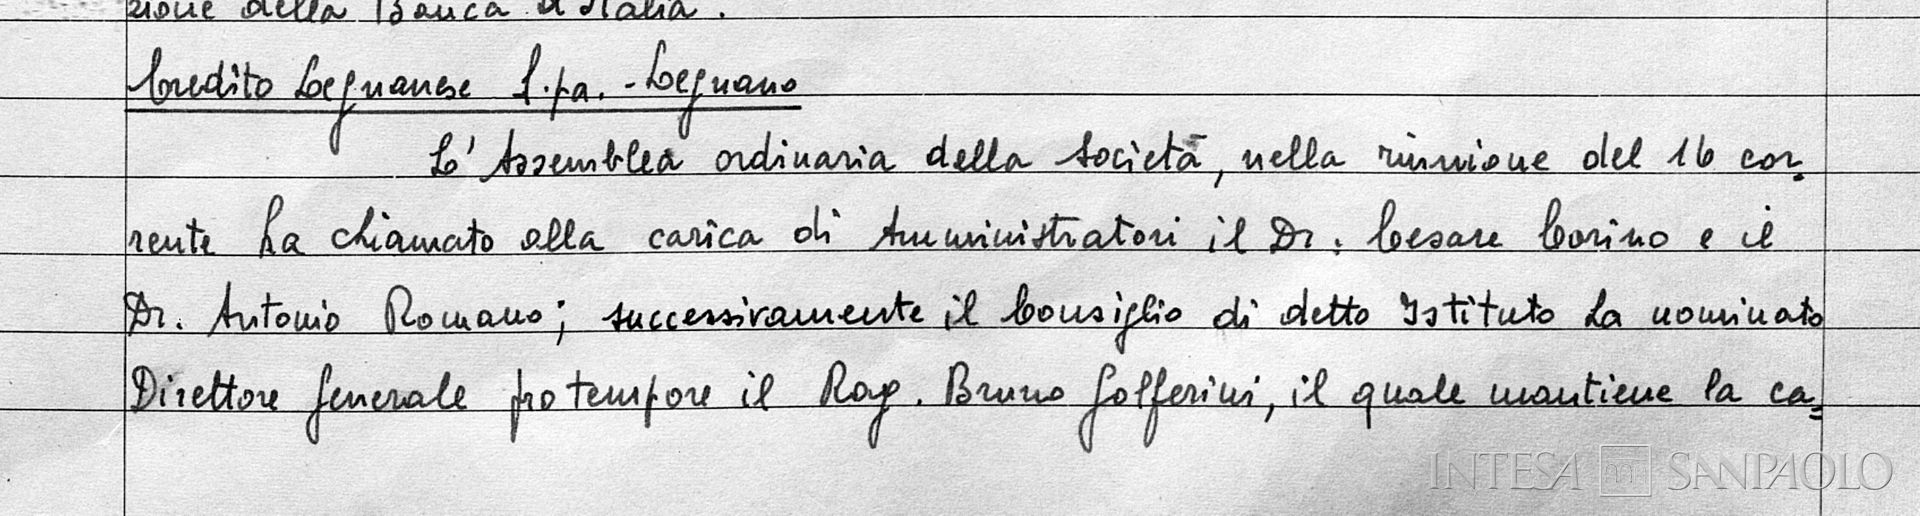 zione della Banca d'Italia.
Credito Legnanese S.pa. - Legnano
L'Assemblea ordinaria della Società, nella riunione del 16 cor-
rente ha chiamato alla carica di Amministratori il Dr. Cesare Corino e il
Dr. Antonio Romano; successivamente il Consiglio di detto Istituto ha nominato
Direttore Generale pro tempore il Rag. Bruno Golferini, il quale mantiene la ca=
INTESA SANPAOLO